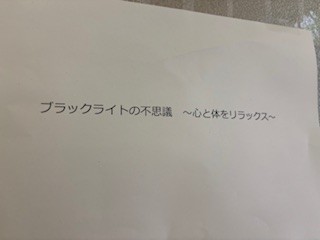 ブラックライトの不思議　～心と体をリラックス～